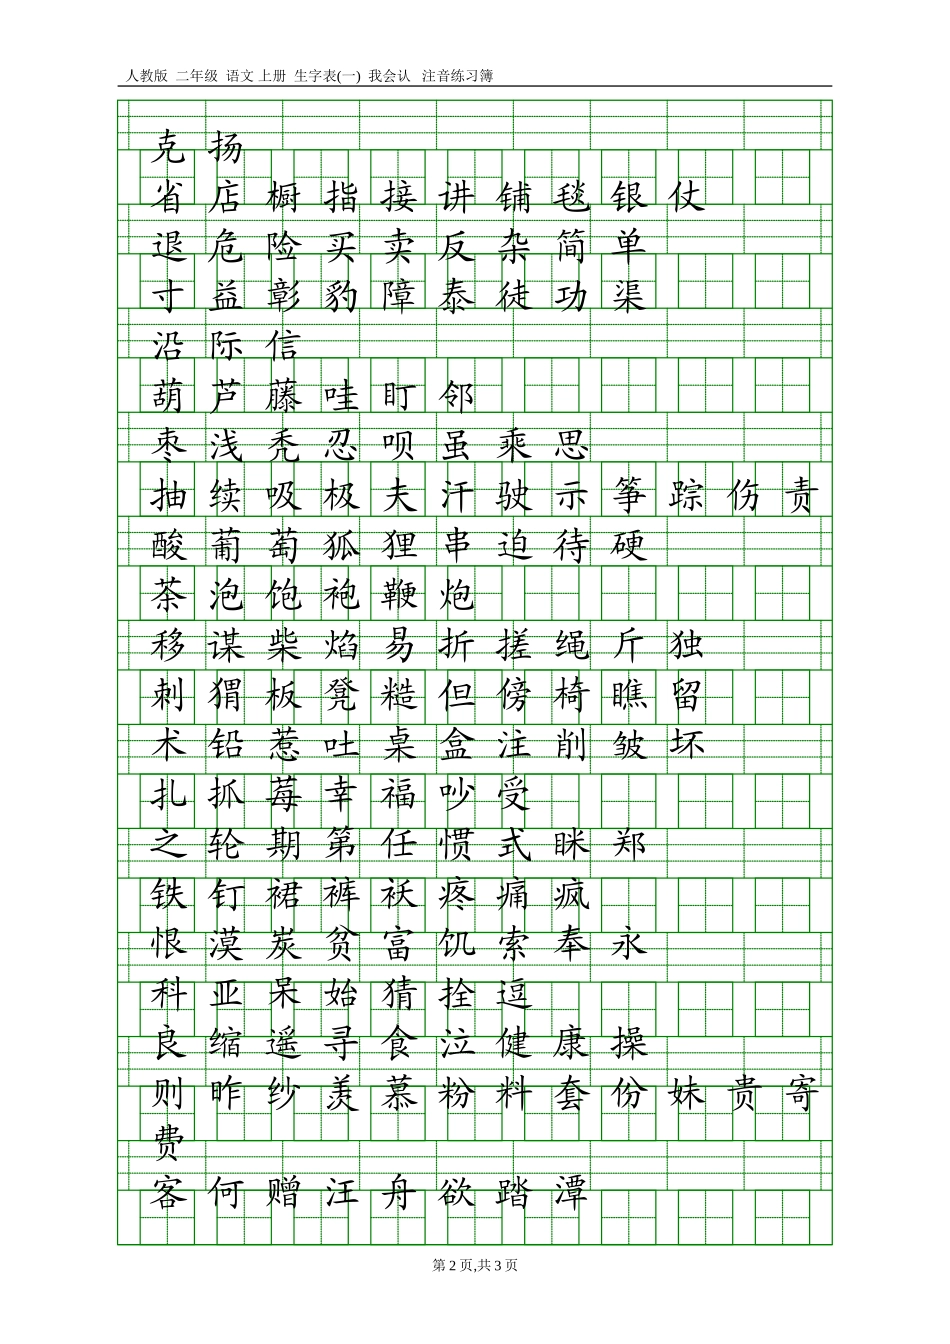 人教版 二年级 语文 上册 生字表(一) 我会认 注音练习簿
克 扬
省 店 橱 指 接 讲 铺 毯 银 仗
退 危 险 买 卖 反 杂 简 单
寸 益 彰 豹 障 泰 徒 功 渠
沿 际 信
葫 芦 藤 哇 盯 邻
枣 浅 秃 忍 呗 虽 乘 思
抽 续 吸 极 夫 汗 驶 示 筝 踪 伤 责
酸 葡 萄 狐 狸 串 迫 待 硬
茶 泡 饱 袍 鞭 炮
移 谋 柴 焰 易 折 搓 绳 斤 独
刺 猬 板 凳 糙 但 傍 椅 瞧 留
术 铅 惹 吐 桌 盒 注 削 皱 坏
扎 抓 莓 幸 福 吵 受
之 轮 期 第 任 惯 式 眯 郑
铁 钉 裙 裤 袄 疼 痛 疯
恨 漠 炭 贫 富 饥 索 奉 永
科 亚 呆 始 猜 拴 逗
良 缩 遥 寻 食 泣 健 康 操
则 昨 纱 羡 慕 粉 料 套 份 妹 贵 寄
费
客 何 赠 汪 舟 欲 踏 潭
第 2 页,共 3 页